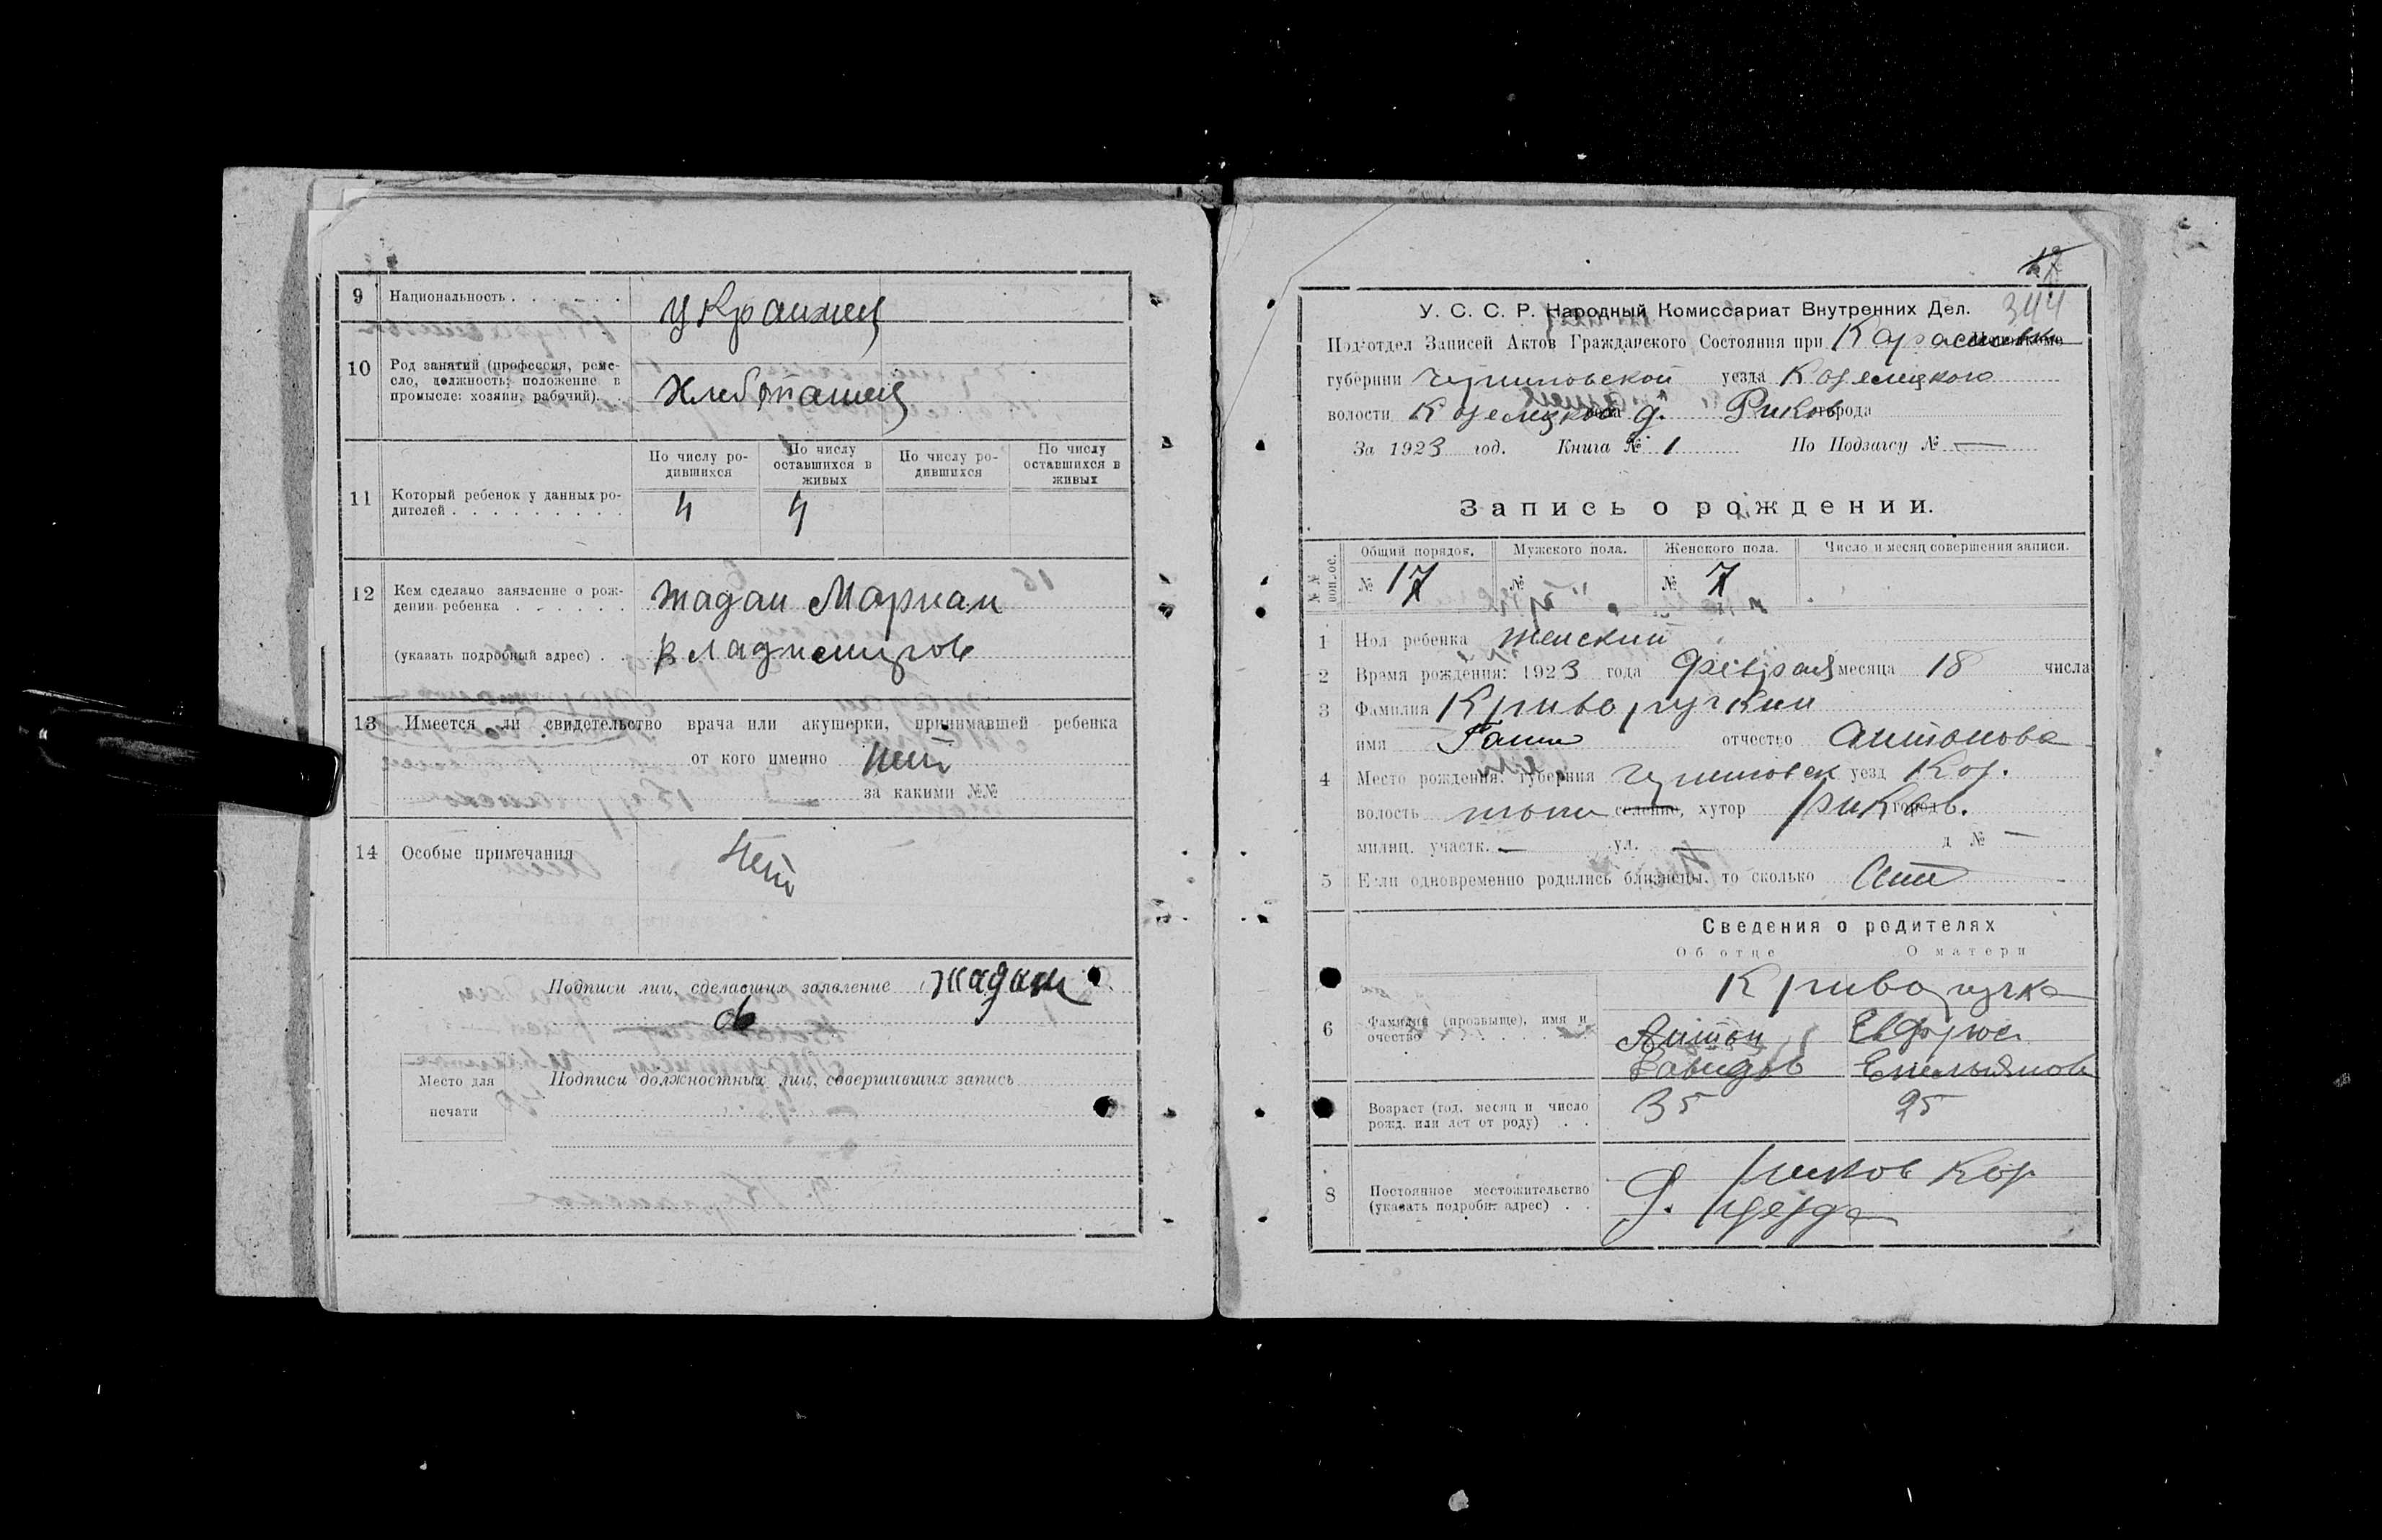 9 Национальность . . . . . . . Украинец
10 Род занятий (профессия, ремесло, должность; положение в промысле: хозяин, рабочий). . Хлебопашец
По числу родившихся
По числу оставшихся в живых
По числу родившихся
По числу оставшихся в живых
11 Который ребенок у данных родителей . . . . . . . . . 4 4
12 Кем сделано заявление о рождении ребенка . . . . . . Жадан Мариан
(указать подробный адрес) . .
13 Имеется ли свидетельство врача или акушерки, принимавшей ребенка
от кого именно нет
за какими №№
14 Особые примечания нет
Подписи лиц, сделавших заявление Жадан
Место для печати
Подписи должностных лиц, совершивших запись
17
344
У. С. С. Р. Народный Комиссариат Внутренних Дел.
Подотдел Записей Актов Гражданского Состояния при
губернии Черниговской уезда Козелецкого
волости Козелецкой д. Риков города
За 1923 год. Книга № 1 По Подзагсу № —
Запись о рождении.
№№ вопрос.
Общий порядок. Мужского пола. Женского пола. Число и месяц совершения записи.
№ 17 № № 7
1 Пол ребенка женский
2 Время рождения: 1923 года Февраля месяца 18 числа
3 Фамилия
имя Ганна отчество Антонова
4 Место рождения: губерния Черниговск уезд Коз.
волость селение, хутор Риков. город
милиц. участк. — ул. — д № —
5 Если одновременно родились близнецы, то сколько
Сведения о родителях
Об отце О матери
6 Фамилия (прозвыще), имя и очество . . . . . . .
Антон
Давидов Емельянов
Возраст (год, месяц и число рожд. или лет от роду) . . 35 25
8 Постоянное местожительство (указать подробн. адрес) . . д. Риков Коз
уезда